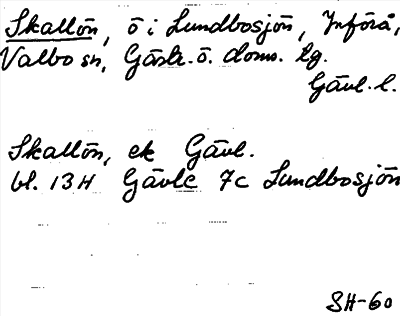 Skallön, ö i Lundbosjön, Införå,
Valbo sn, Gästr. ö. doms. tg.
Gävl. l.
Skallön, ek Gävl.
bl. 13H Gävle 7c Lundbosjön
SH-60